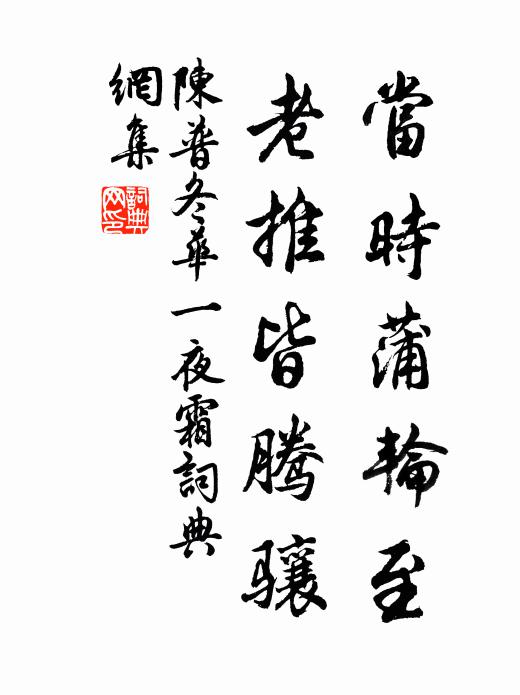 當時蒲輪至
老推皆腾骧
陳普冬華一夜霜詞典
網集
詞典网印